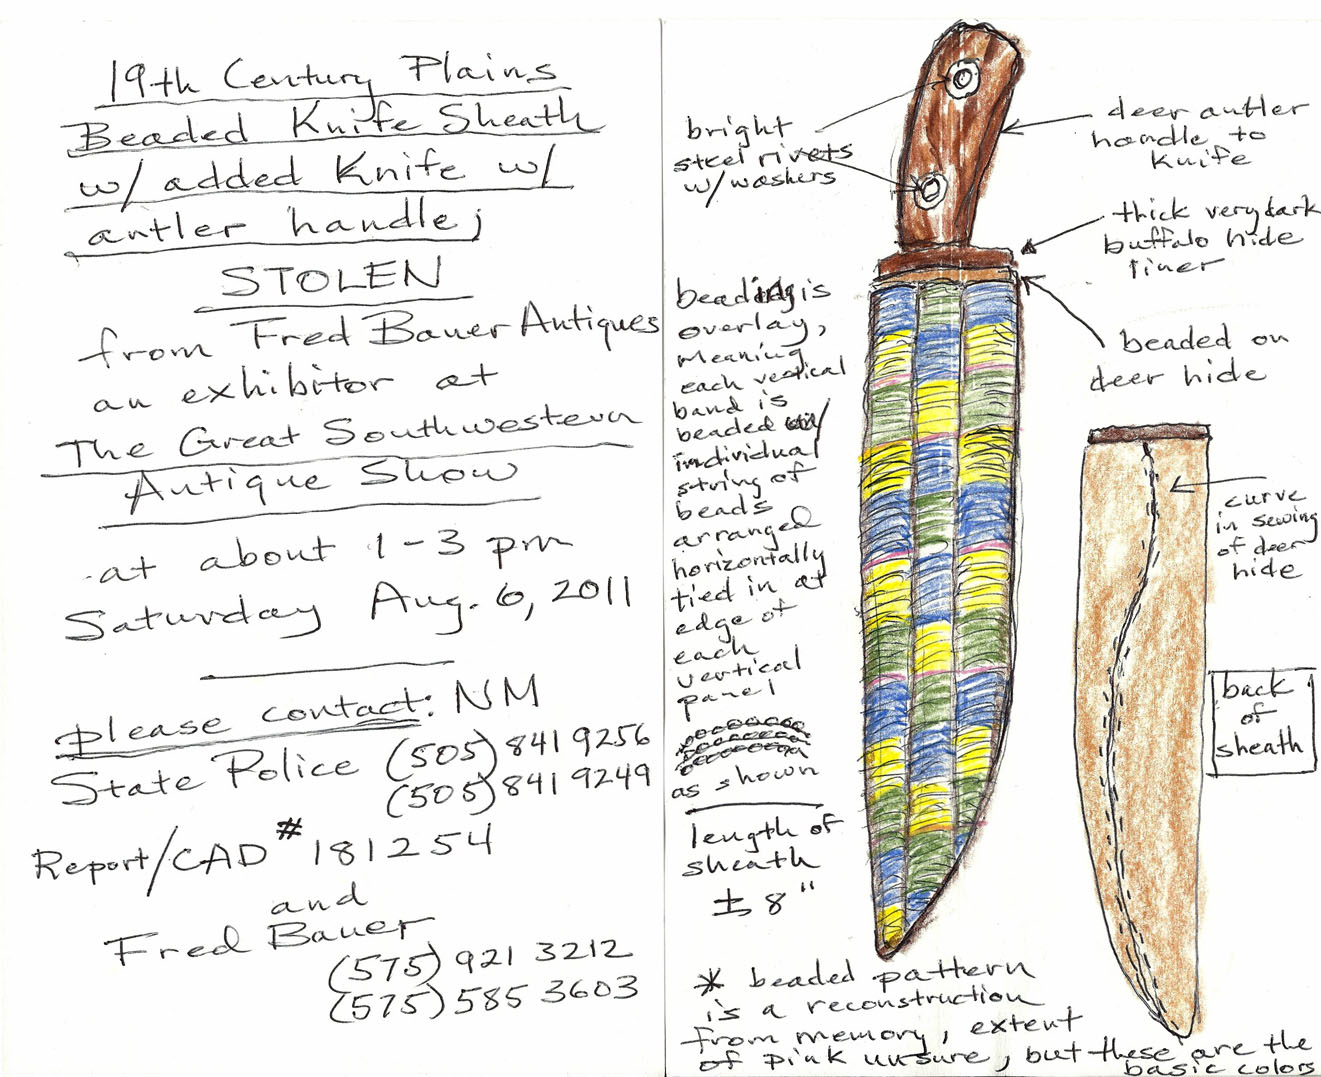 19th Century Plains
Beaded Knife Sheath
w/ added Knife w/
antler handle;
STOLEN
from Fred Bauer Antiques
an exhibitor at
The Great Southwestern
Antique Show
at about 1-3 pm
Saturday Aug. 6, 2011
Please contact: NM
State Police (505) 841 9256
(505) 841 9249
Report/CAD # 181254
and
Fred Bauer
(575) 921 3212
(575) 585 3603
bright
steel rivets
w/washers
deer antler
handle to
knife
thick very dark
buffalo hide
liner
beaded on
deer hide
beading is
overlay,
meaning
each vertical
band is
beaded w/
individual
string of
beads
arranged
horizontally
tied in at
edge of
each
vertical
panel
as shown
length of
sheath
± 8"
curve
in sewing
of deer
hide
back
of
sheath
* beaded pattern
is a reconstruction
from memory, extent
of pink unsure, but these are the
basic colors